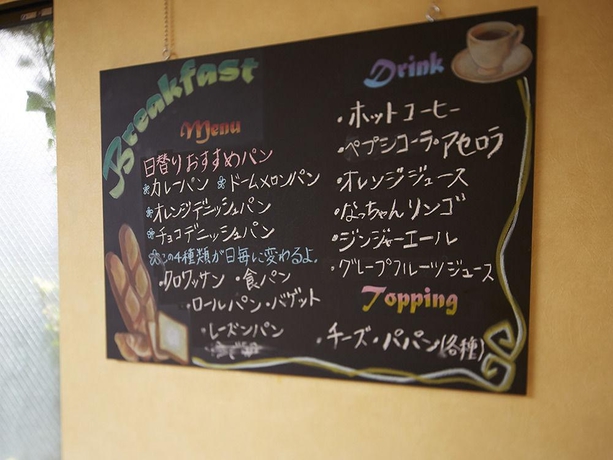 Breakfast
Menu
日替りおすすめパン
❇カレーパン ❇ドームメロンパン
❇オレンジデニッシュパン
❇チョコデニッシュパン
☆この4種類が日毎に変わるよ。
・クロワッサン ・食パン
・ロールパン・バゲット
・レーズンパン
Drink
・ホットコーヒー
・ペプシコーラ・アセロラ
・オレンジジュース
・なっちゃんリンゴ
・ジンジャーエール
・グレープフルーツジュース
Topping
・チーズ・パパン(各種)